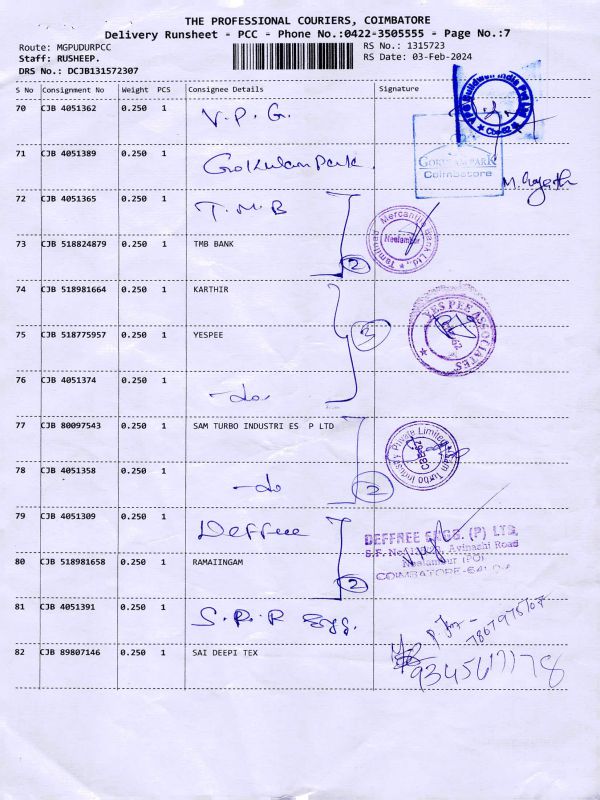 THE PROFESSIONAL COURIERS, COIMBATORE
Delivery Runsheet - PCC - Phone No.:0422-3505555 - Page No.:7
Route: MGPUDURPCC
RS No.: 1315723
Staff: RUSHEEP.
RS Date: 03-Feb-2024
DRS No.: DCJB131572307
S No Consignment No Weight PCS Consignee Details Signature
70 CJB 4051362 0.250 1 V.P.G.
71 CJB 4051389 0.250 1 Gokulam Park
GOKULAM PARK
Coimbatore
72 CJB 4051365 0.250 1 T.M.B
Mercantile Bank Ltd.,
Neelambur
73 CJB 518824879 0.250 1 TMB BANK
2
74 CJB 518981664 0.250 1 KARTHIR
75 CJB 518775957 0.250 1 YESPEE
3
YES PEE ASSOCIATES
76 CJB 4051374 0.250 1 -do.
77 CJB 80097543 0.250 1 SAM TURBO INDUSTRI ES P LTD
Sam Turbo Industry Private Limited
78 CJB 4051358 0.250 1 -do
2
79 CJB 4051309 0.250 1 Deffree
DEFFREE ENGG. (P) LTD.
Avinashi Road
Neelambur (PO)
COIMBATORE-641
80 CJB 518981658 0.250 1 RAMAIINGAM
2
81 CJB 4051391 0.250 1 S.P.R Egg.
82 CJB 89807146 0.250 1 SAI DEEPI TEX